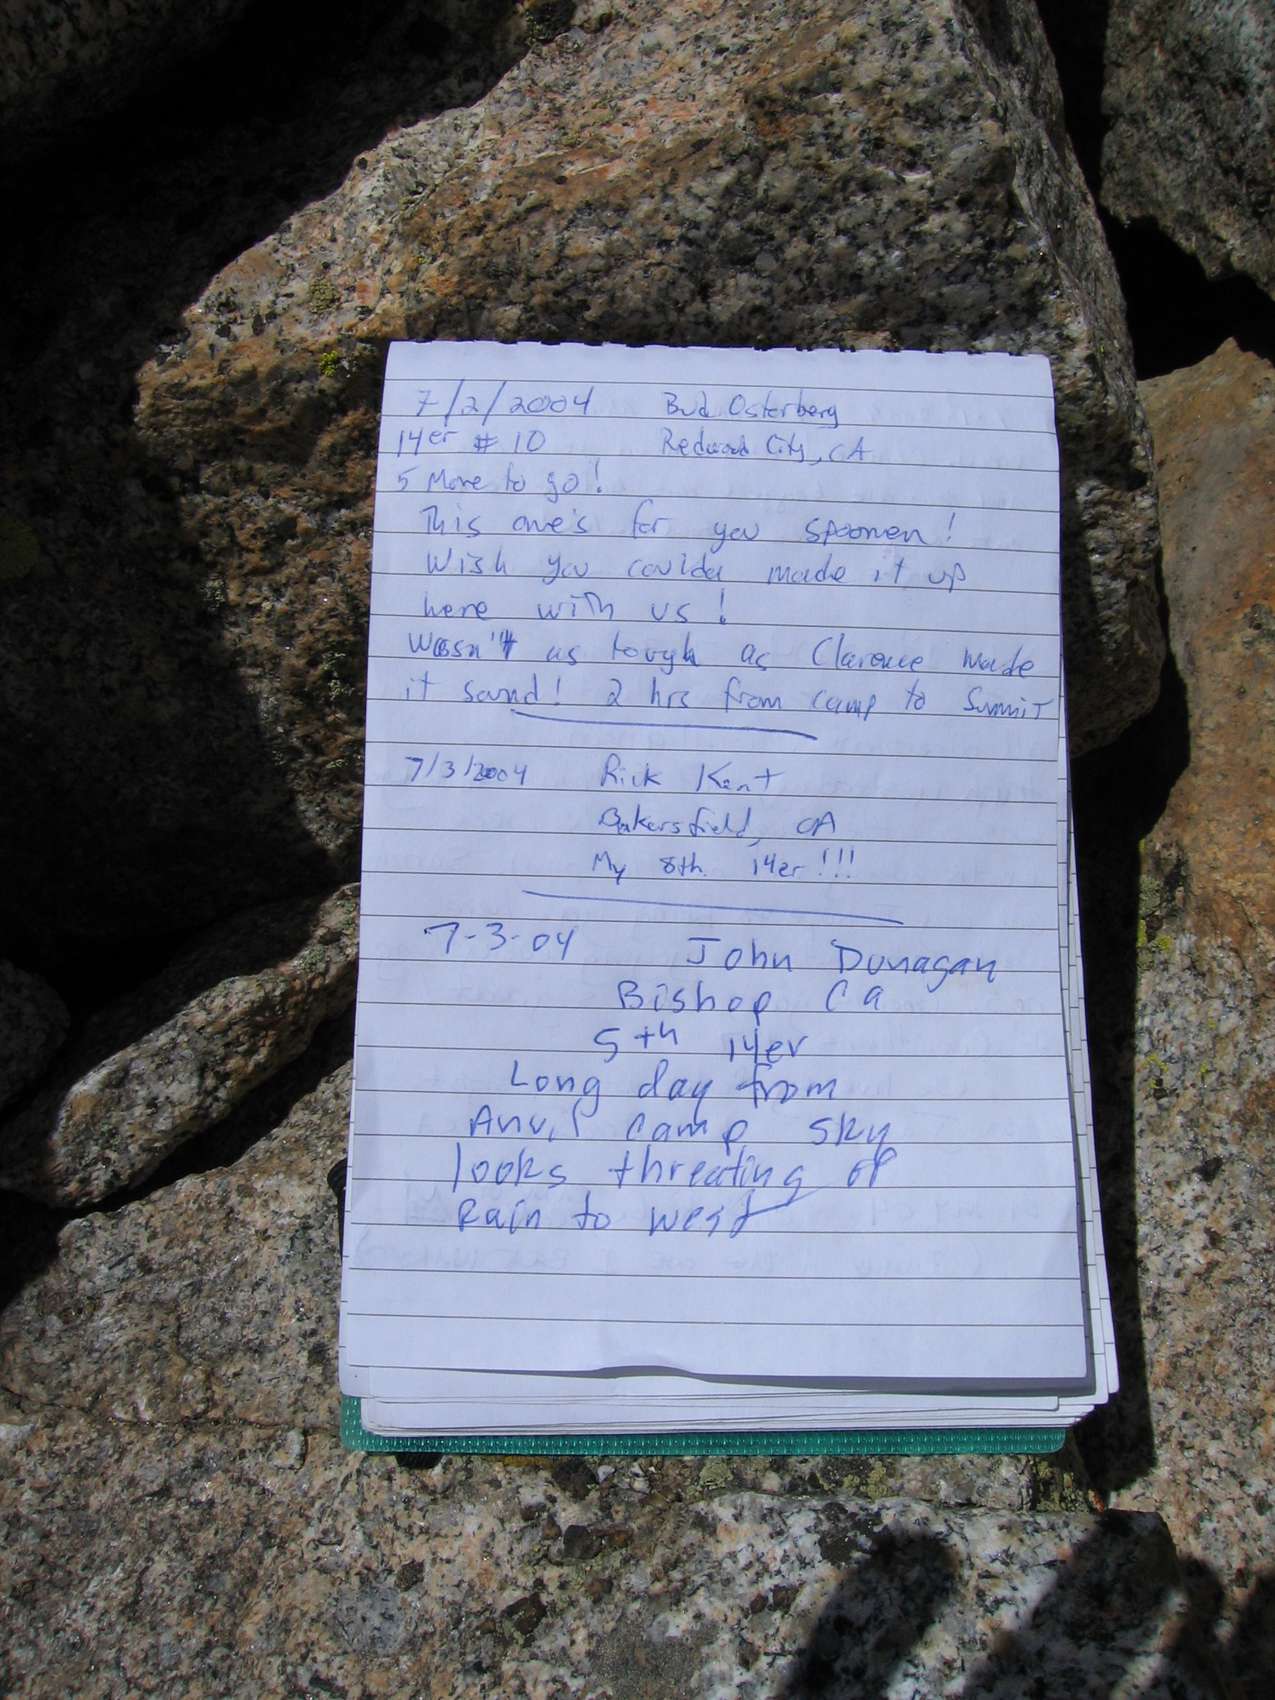 7/2/2004 Bud Osterberg
14er # 10 Redwood City, CA
5 More to go!
This one's for you spoonen!
Wish you coulda made it up
here with us!
Wasn't as tough as Clarence made
it sound! 2 hrs from camp to Summit
7/3/2004 Rick Kent
Bakersfield, CA
My 8th 14er!!!
7-3-04 John Dunagan
Bishop Ca
5th 14er
Long day from
Anvil Camp Sky
looks threating of
Rain to west